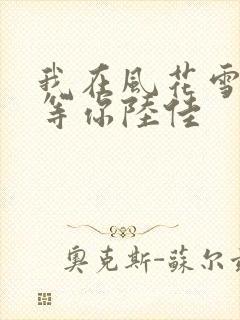 我在風花雪
等你陸佳
奥克斯-蘇尔